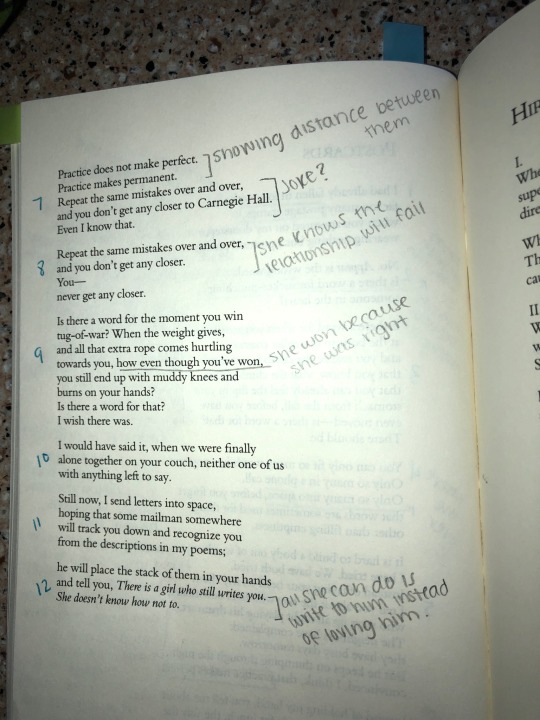 Practice does not make perfect.
Practice makes permanent.
showing distance between
them
7
Repeat the same mistakes over and over,
and you don't get any closer to Carnegie Hall.
Even I know that.
Joke?
8
Repeat the same mistakes over and over,
and you don't get any closer.
You—
never get any closer.
she knows the
relationship will fail
9
Is there a word for the moment you win
tug-of-war? When the weight gives,
and all that extra rope comes hurtling
towards you, how even though you've won,
you still end up with muddy knees and
burns on your hands?
Is there a word for that?
I wish there was.
she won because
she was right
10
I would have said it, when we were finally
alone together on your couch, neither one of us
with anything left to say.
11
Still now, I send letters into space,
hoping that some mailman somewhere
will track you down and recognize you
from the descriptions in my poems;
12
he will place the stack of them in your hands
and tell you, There is a girl who still writes you.
She doesn't know how not to.
all she can do is
write to him instead
of loving him.
I.
II